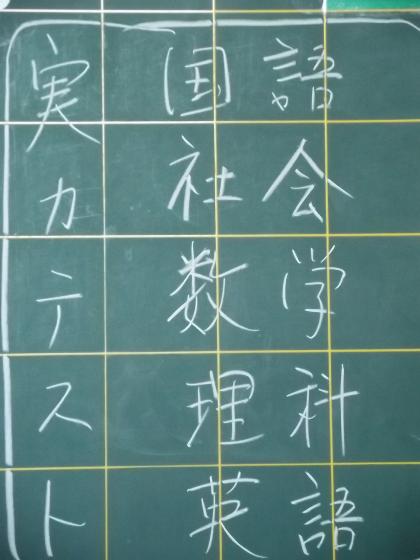 実力テスト
国語
社会
数学
理科
英語